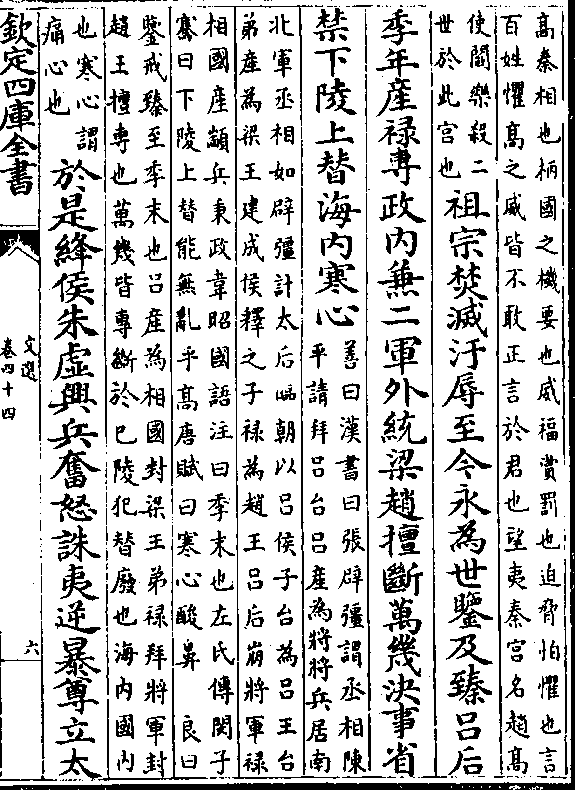 高秦相也柄國之機要也威福賞罰也迫脅怕懼也言
百姓懼高之威皆不敢正言於君也望夷秦宫名趙高
使閻樂殺二
世於此宫也
祖宗焚滅汙辱至今永為世鑒及臻吕后
季年産禄専政内兼二軍外統梁趙擅斷萬幾決事省
禁下陵上替海内寒心
善曰漢書曰張辟彊謂丞相陳
平請拜吕台吕産為將將兵居南
北軍丞相如辟彊計太后臨朝以吕侯子台為吕王台
弟産為梁王建成侯釋之子禄為趙王吕后崩將軍禄
相國産顓兵秉政韋昭國語注曰季末也左氏傳閔子
騫曰下陵上替能無亂乎髙唐賦曰寒心酸鼻 良曰
鑒戒臻至季末也吕産為相國封梁王弟禄拜將軍封
趙王擅専也萬幾皆専斷於已陵犯替廢也海内國内
也寒心謂
痛心也
於是絳侯朱虚興兵奮怒誅夷逆暴尊立太
欽定四庫全書
文選
卷四十四
六